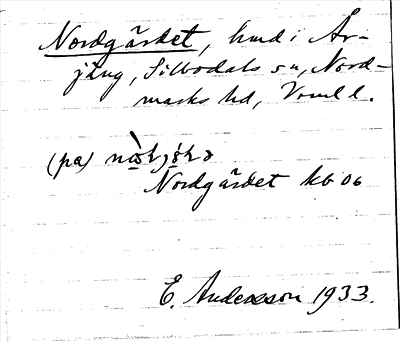 Nordgärdet, hmd i År-
jäng, Sillbodals sn, Nord-
marks hd, Vrml l.
(pa)
Nordgärdet kb 06
E. Andersson 1933.